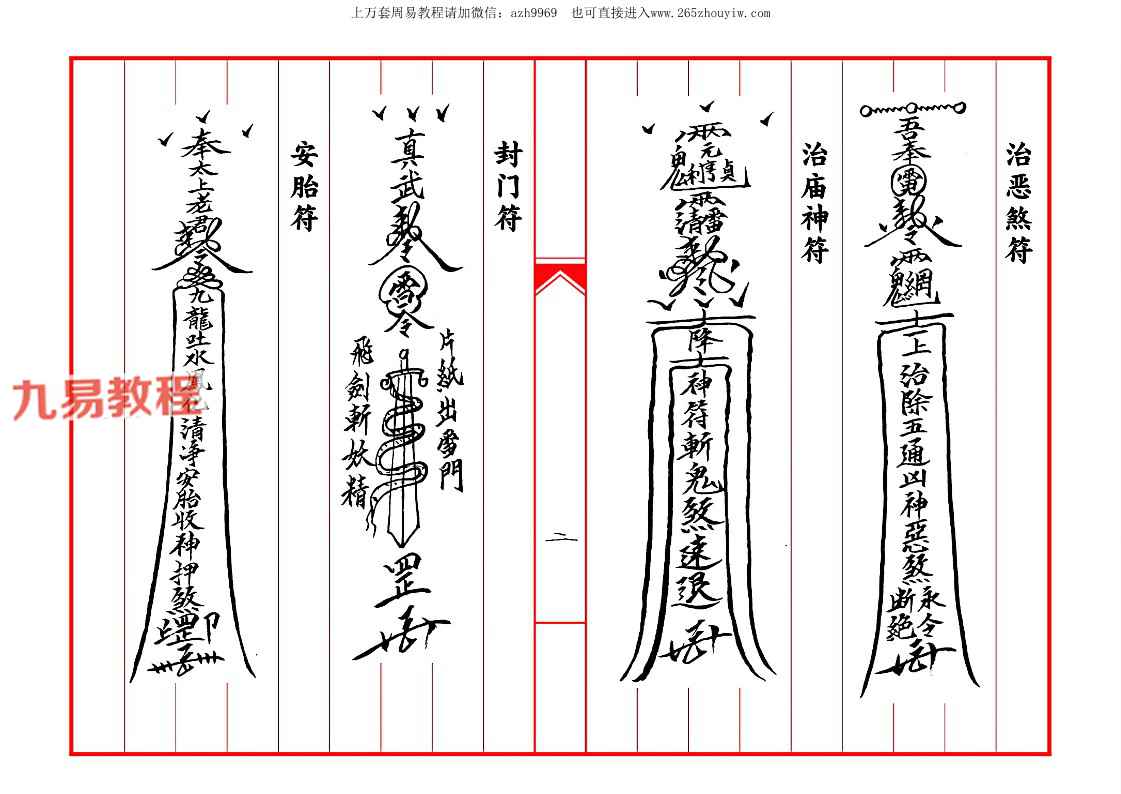 上万套周易教程请加微信：azh9969　也可直接进入www.265zhouyiw.com
治恶煞符
吾奉
雷
令
網
上治除五通凶神惡煞
永令
断絕
治庙神符
元亨利貞
降
神符斬鬼煞速退
二
封门符
真武
令
片紙出雷門
飛劍斬妖精
罡
安胎符
奉太上老君
九龍吐水
清净安胎收神押煞罡
九易教程